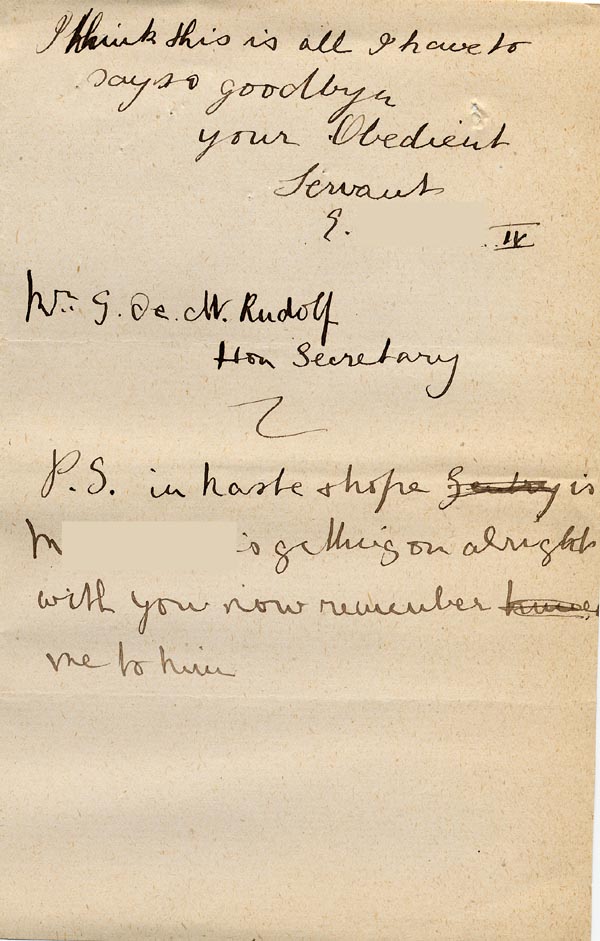 I think this is all I have to
say so goodbye
your Obedient
Servant
E. IV
Mr. E. de M. Rudolf
Hon Secretary
P.S. in haste & hope is
M is getting on alright
with you now remember
me to him